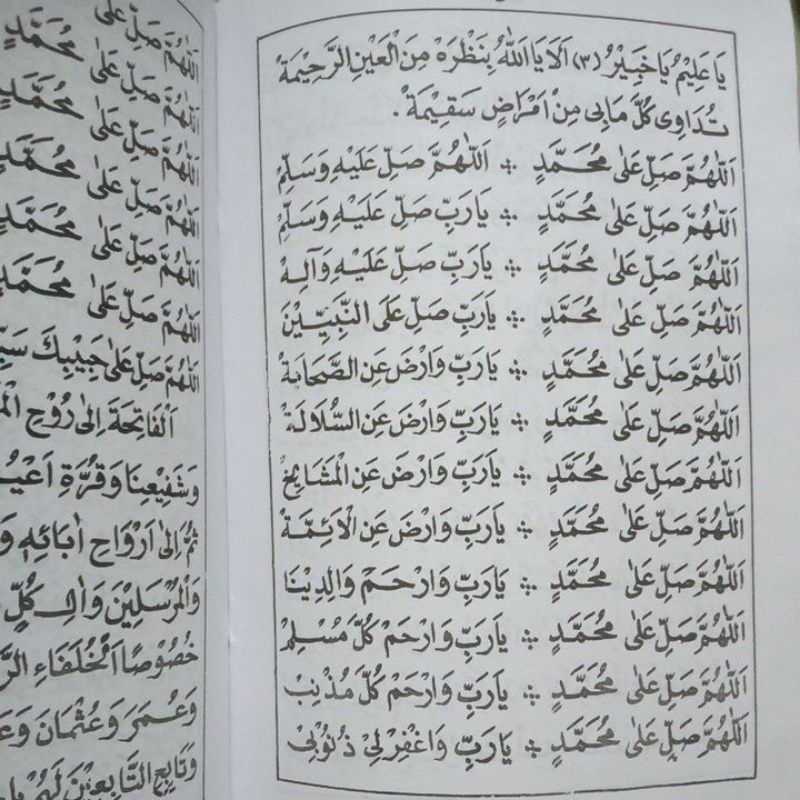 يَا عَلِيْمُ يَا خَبِيْرُ (٣) اَلَا يَا اَللّٰهُ بِنَظْرَةْ مِنَ الْعَيْنِ الرَّحِيْمَةْ
تُدَاوِى كُلَّ مَا بِى مِنْ اَمْرَاضٍ سَقِيْمَةْ .
اَللّٰهُمَّ صَلِّ عَلٰى مُحَمَّدٍ ؞ اَللّٰهُمَّ صَلِّ عَلَيْهِ وَسَلِّمْ
اَللّٰهُمَّ صَلِّ عَلٰى مُحَمَّدٍ ؞ يَارَبِّ صَلِّ عَلَيْهِ وَسَلِّمْ
اَللّٰهُمَّ صَلِّ عَلٰى مُحَمَّدٍ ؞ يَارَبِّ صَلِّ عَلَيْهِ وَآلِهْ
اَللّٰهُمَّ صَلِّ عَلٰى مُحَمَّدٍ ؞ يَارَبِّ صَلِّ عَلَى النَّبِيِّيْنَ
اَللّٰهُمَّ صَلِّ عَلٰى مُحَمَّدٍ ؞ يَارَبِّ وَارْضَ عَنِ الصَّحَابَةْ
اَللّٰهُمَّ صَلِّ عَلٰى مُحَمَّدٍ ؞ يَارَبِّ وَارْضَ عَنِ السُّلَالَةْ
اَللّٰهُمَّ صَلِّ عَلٰى مُحَمَّدٍ ؞ يَارَبِّ وَارْضَ عَنِ الْمَشَايِخْ
اَللّٰهُمَّ صَلِّ عَلٰى مُحَمَّدٍ ؞ يَارَبِّ وَارْضَ عَنِ الْاَئِمَّةْ
اَللّٰهُمَّ صَلِّ عَلٰى مُحَمَّدٍ ؞ يَارَبِّ وَارْحَمْ وَالِدِيْنَا
اَللّٰهُمَّ صَلِّ عَلٰى مُحَمَّدٍ ؞ يَارَبِّ وَارْحَمْ كُلَّ مُسْلِمْ
اَللّٰهُمَّ صَلِّ عَلٰى مُحَمَّدٍ ؞ يَارَبِّ وَارْحَمْ كُلَّ مُذْنِبْ
اَللّٰهُمَّ صَلِّ عَلٰى مُحَمَّدٍ ؞ يَارَبِّ وَاغْفِرْ لِيْ ذُنُوْبِيْ
اَللّٰهُمَّ صَلِّ عَلٰى
اَللّٰهُمَّ صَلِّ عَلٰى مُحَمَّدٍ
اَللّٰهُمَّ صَلِّ عَلٰى مُحَمَّدٍ
اَللّٰهُمَّ صَلِّ عَلٰى مُحَمَّدٍ
اَللّٰهُمَّ صَلِّ عَلٰى مُحَمَّدٍ
اَللّٰهُمَّ صَلِّ عَلٰى مُحَمَّدٍ
اَللّٰهُمَّ صَلِّ عَلٰى حَبِيْبِكَ
اَلْفَاتِحَةَ اِلٰى رُوْحِ
وَشَفِيْعِنَا وَقُرَّةِ
ثُمَّ اِلٰى اَرْوَاحِ اٰبَائِهِ
وَالْمُرْسَلِيْنَ وَاٰلِ كُلٍّ
خُصُوْصًا اَلْخُلَفَاءِ
وَعُمَرَ وَعُثْمَانَ
وَتَابِعِ التَّابِعِيْنَ لَهُمْ